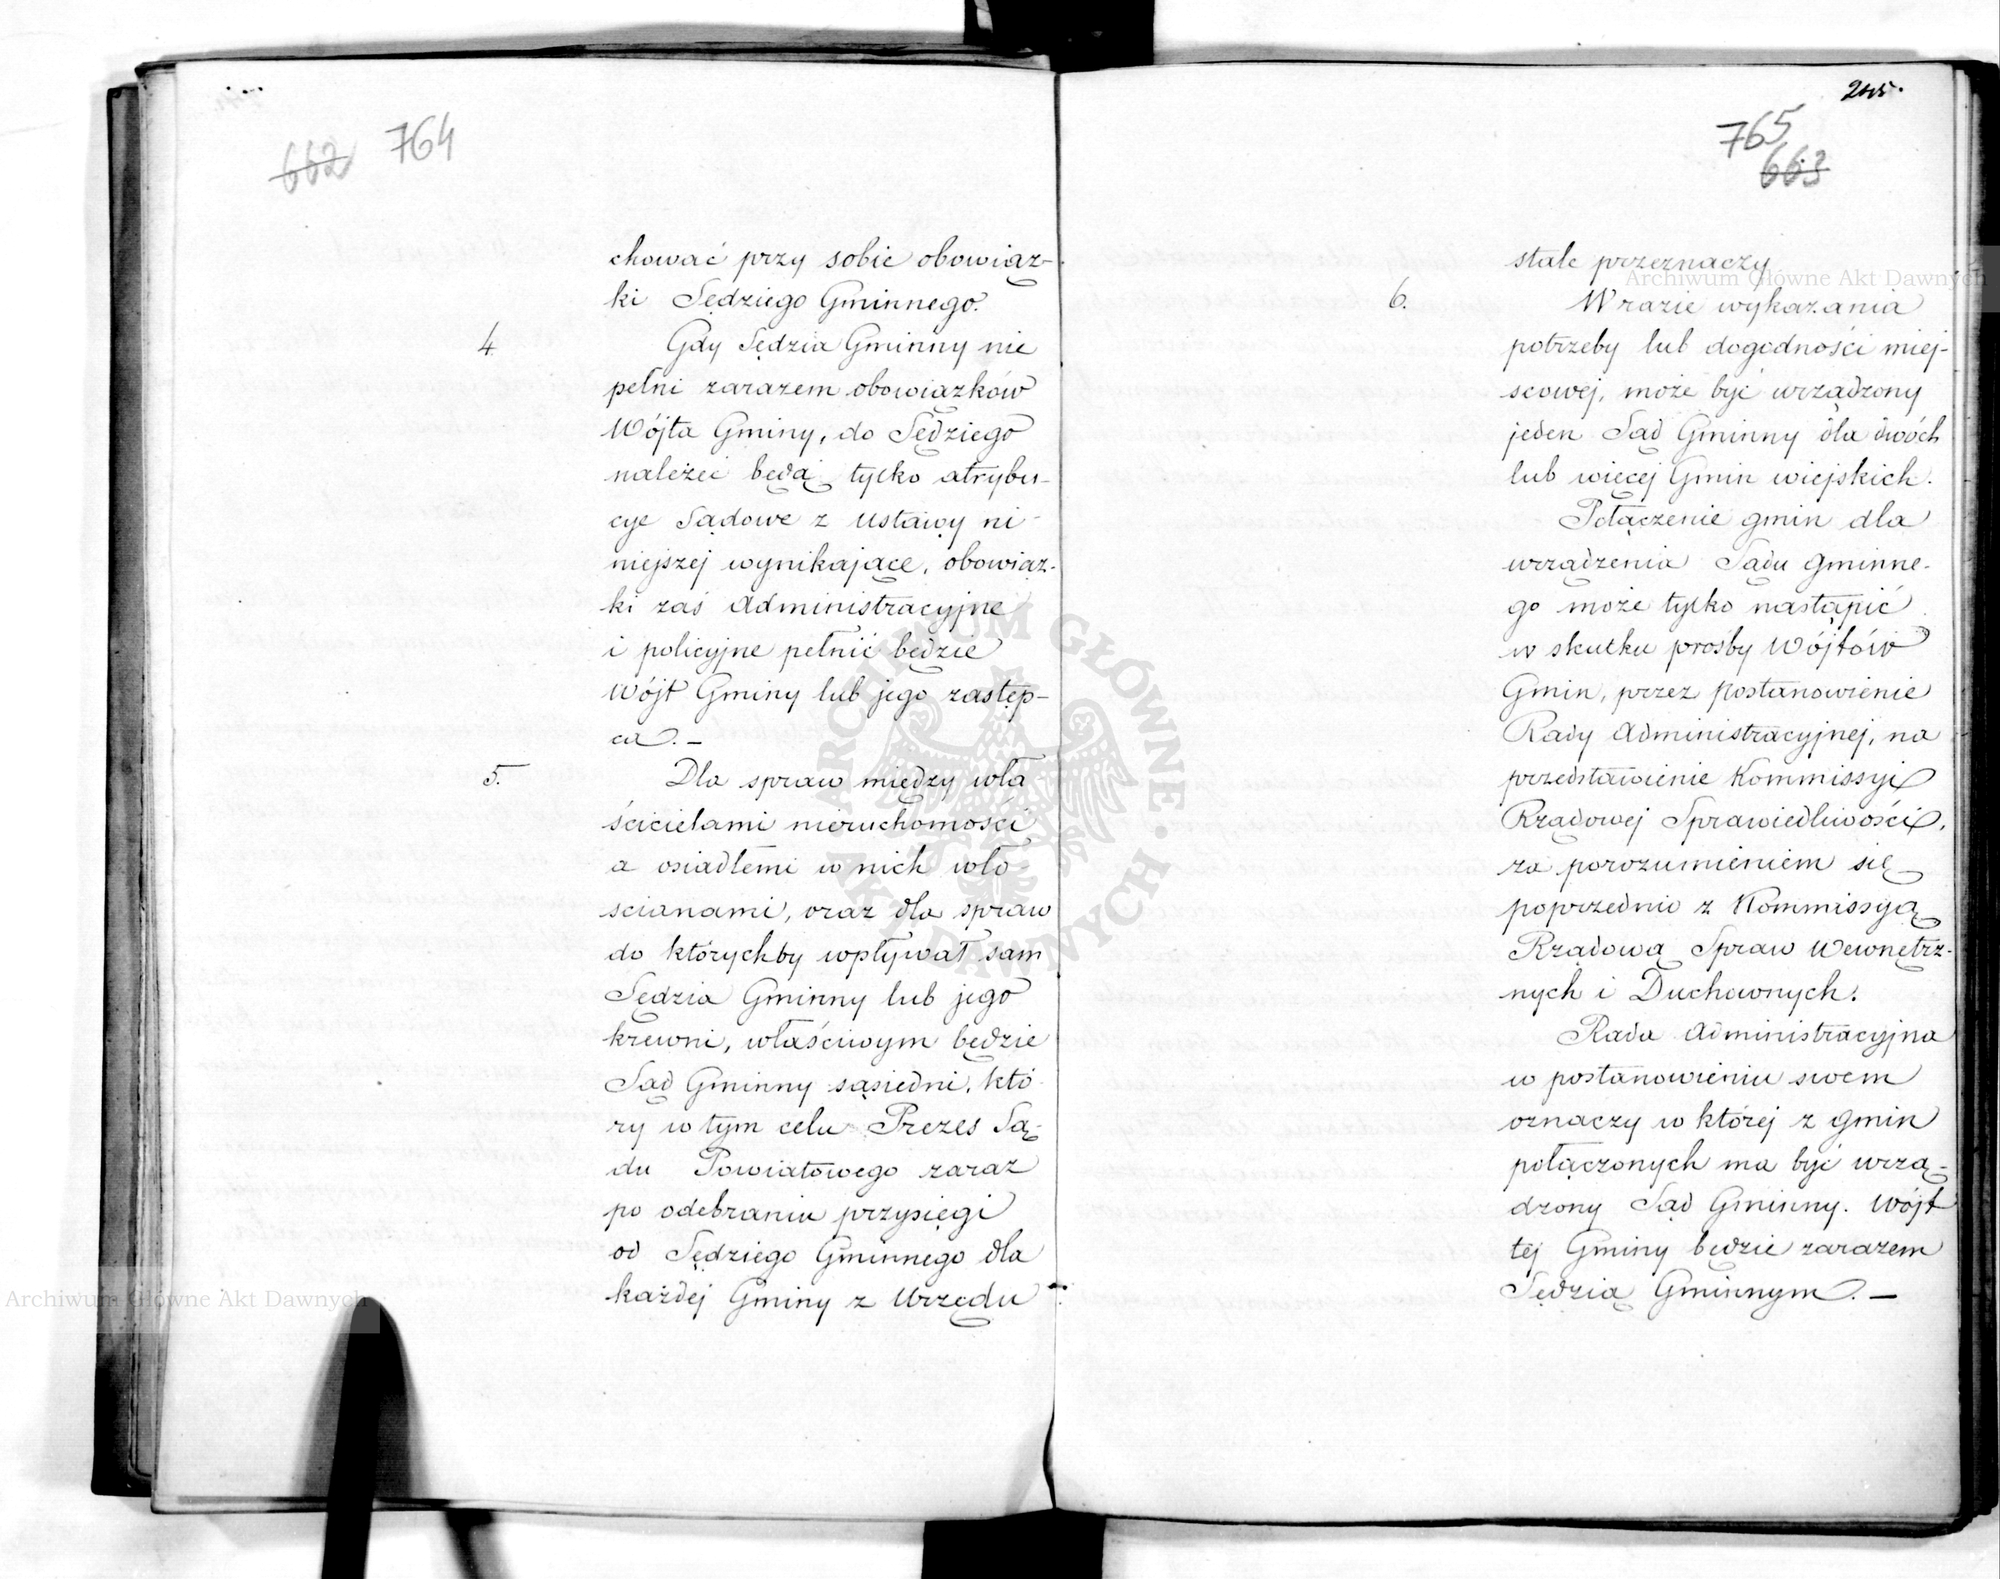 662 764
chować przy sobie obowiąz-
ki Sędziego Gminnego.
4.
Gdy Sędzia Gminny nie
pełni zarazem obowiązków
Wójta Gminy, do Sędziego
należeć będą tylko atrybu-
cye Sądowe z Ustawy ni-
niejszej wynikające, obowiąz-
ki zaś Administracyjne
i policyjne pełnić będzie
Wójt Gminy lub jego zastęp-
ca. —
5.
Dla spraw między wła-
ścicielami nieruchomości
a osiadłemi w nich wło-
ścianami, oraz dla spraw
do którychby wpływał sam
Sędzia Gminny lub jego
krewni, właściwym będzie
Sąd Gminny sąsiedni, któ-
ry w tym celu Prezes Są-
du Powiatowego zaraz
po odebraniu przysięgi
od Sędziego Gminnego dla
każdej Gminy z Urzędu
765
663
stale przeznaczy
6.
W razie wykazania
potrzeby lub dogodności miej-
scowej, może być urządzony
jeden Sąd Gminny dla dwóch
lub więcej Gmin wiejskich.
Połączenie gmin dla
urządzenia Sądu Gminne-
go może tylko nastąpić
w skutku prośby Wójtów
Gmin, przez Postanowienie
Rady Administracyjnej, na
przedstawienie Kommissyi
Rządowej Sprawiedliwości,
za porozumieniem się
poprzednio z Kommissyą
Rządową Spraw Wewnętrz-
nych i Duchownych.
Rada Administracyjna
w postanowieniu swem
oznaczy w której z gmin
połączonych ma być urzą-
dzony Sąd Gminny. Wójt
tej Gminy będzie zarazem
Sędzią Gminnym. —
Archiwum Główne Akt Dawnych
ARCHIWUM GŁÓWNE AKT DAWNYCH
Archiwum Główne Akt Dawnych